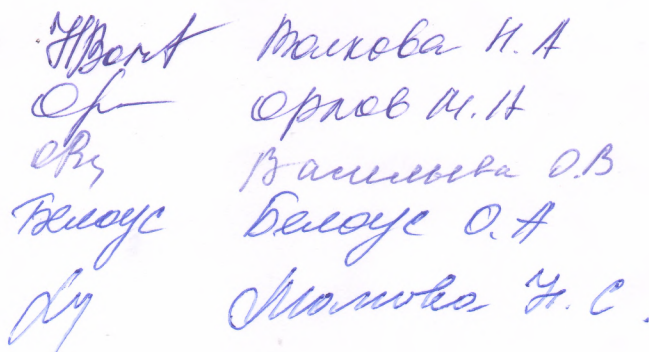 Волкова Н. А
Орлов М. А
Васильева О. В
Белоус Белоус О. А
Н. С.